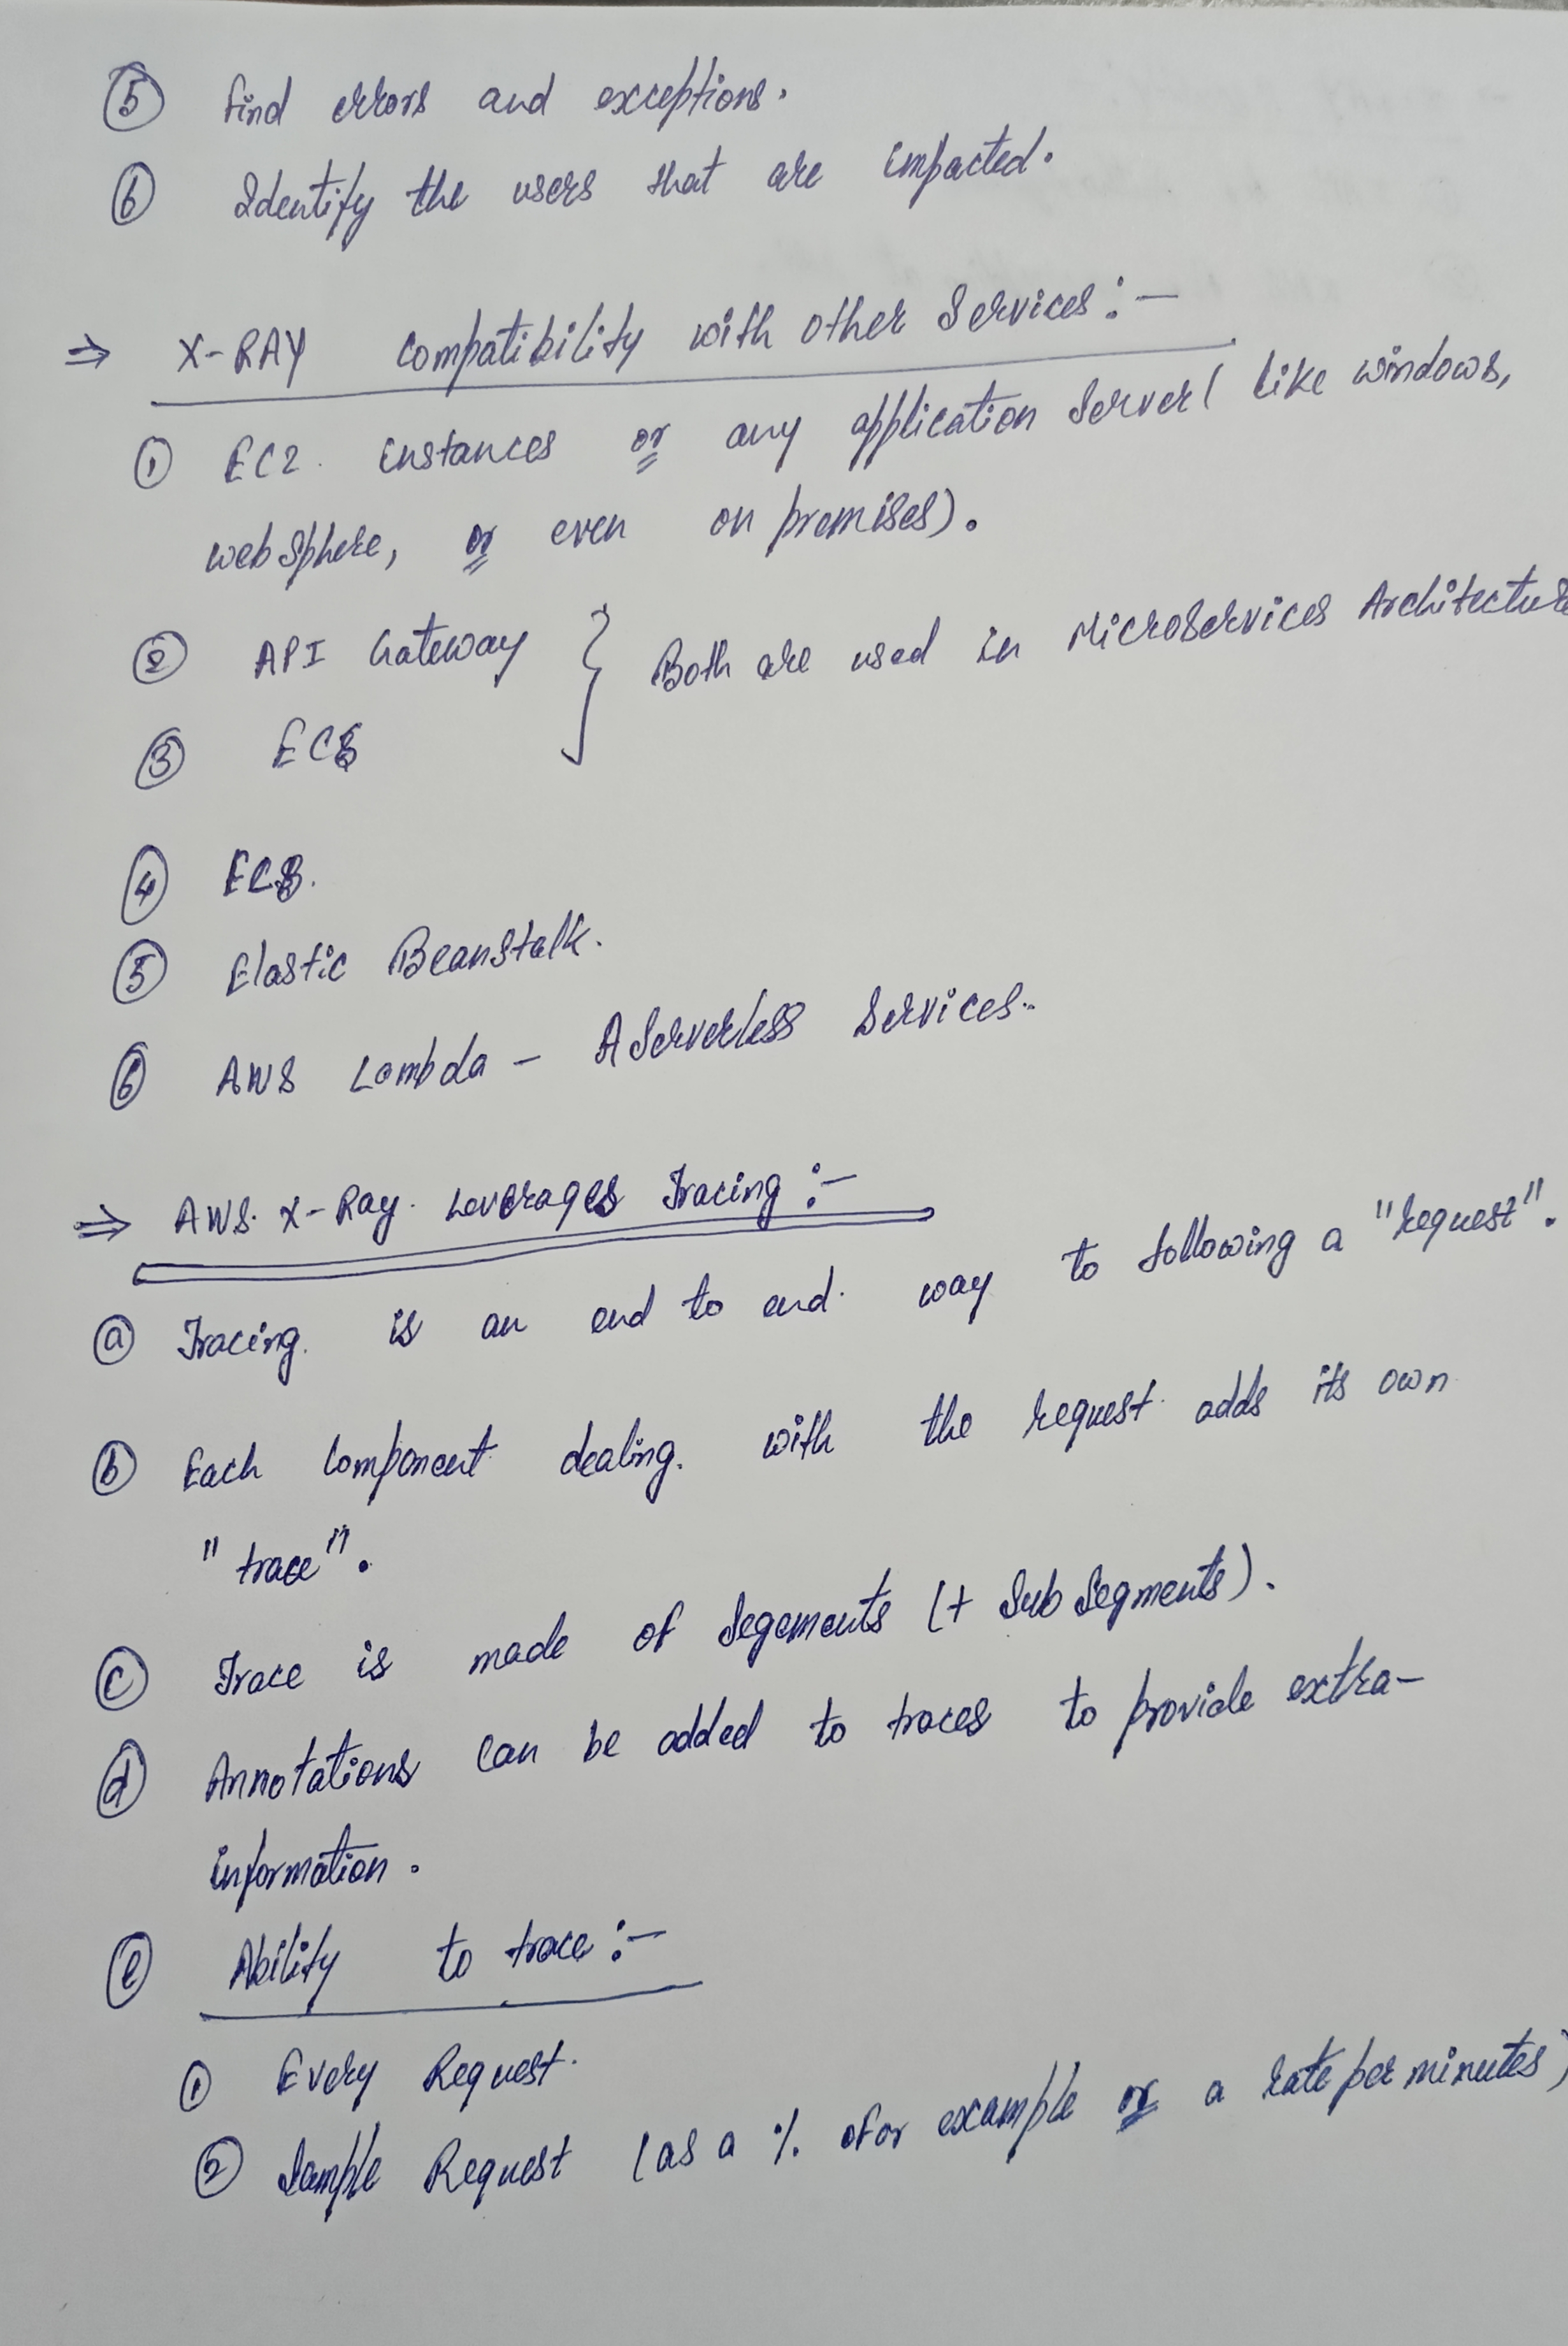 ⑤ Find errors and exceptions.
⑥ Identify the users that are impacted.
⇒ X-RAY Compatibility with other Services:-
① EC2. instances or any application Server( like windows,
web Sphere, or even on premises).
② API Gateway } Both are used in Microservices Architecture
③ ECS
④ ECS.
⑤ Elastic Beanstalk.
⑥ AWS Lambda - A Serverless Services..
⇒ AWS. X-Ray. Leverages Tracing :-
ⓐ Tracing. is an end to end. way to following a "request".
ⓑ Each Component dealing. with the request. adds its own
"trace".
ⓒ Trace is made of Segements (+ Sub Segments).
ⓓ Annotations can be added to traces to provide extra-
information.
ⓔ Ability to trace :-
① Every Request.
② Sample Request (as a % ofor example or a rate per minutes)